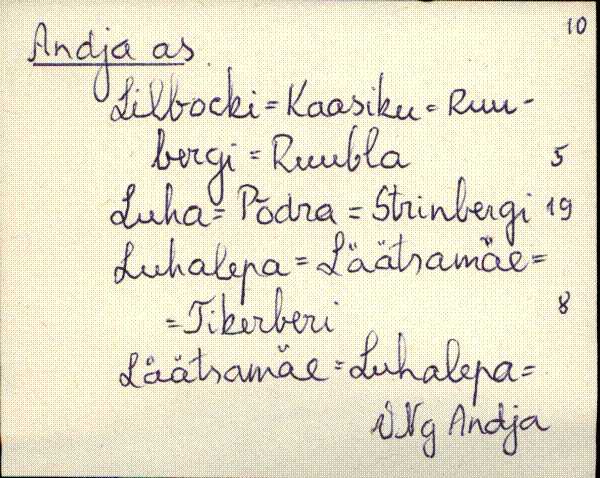 10
Andja as.
Lilbocki = Kaasiku = Ruu-
bergi = Ruubla 5
Luha = Põdra = Strinbergi 19
Luhalepa = Läätsamäe =
= Tikerberi 8
Läätsamäe = Luhalepa =
VNg Andja